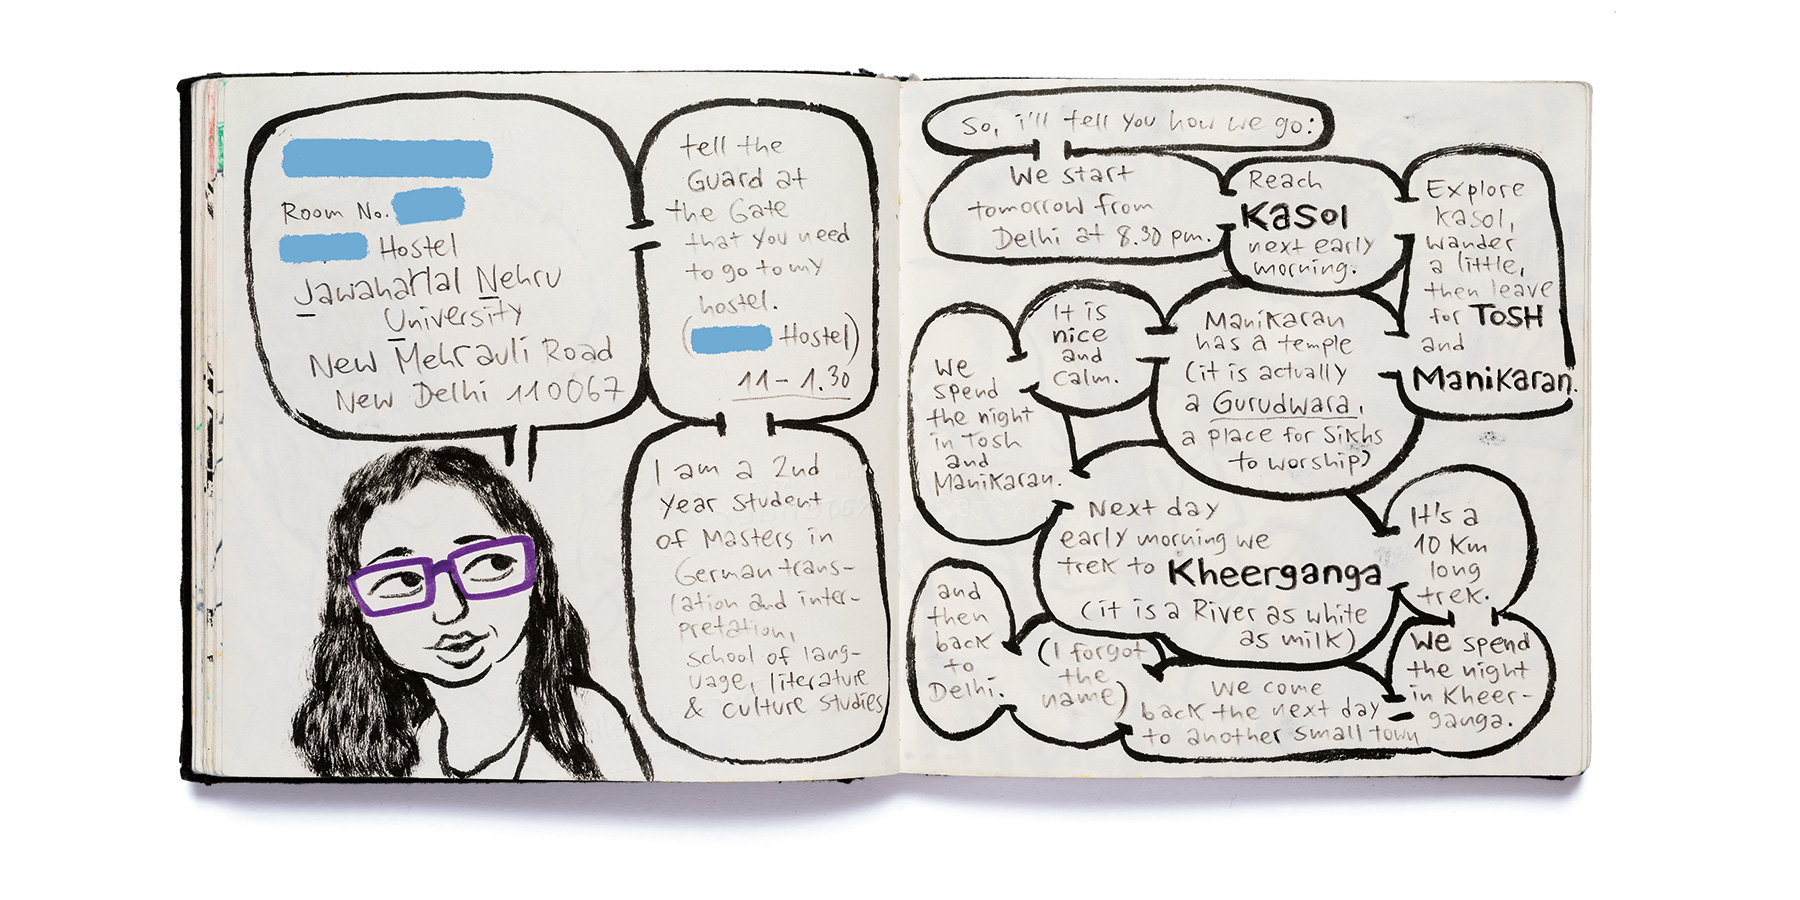 Room No.
Hostel
Jawaharlal Nehru
University
New Mehrauli Road
New Delhi 110067
tell the
Guard at
the Gate
that you need
to go to my
hostel.
( Hostel)
11 - 1.30
I am a 2nd
year student
of Masters in
German trans-
lation and inter-
pretation,
school of lang-
uage, literature
& culture studies
So, i'll tell you how we go:
We start
tomorrow from
Delhi at 8.30 pm.
Reach
Kasol
next early
morning.
Explore
Kasol,
wander
a little,
then leave
for TOSH
and
Manikaran.
Manikaran
has a temple
(it is actually
a Gurudwara,
a place for Sikhs
to worship)
It is
nice
and
calm.
We
spend
the night
in Tosh
and
Manikaran.
Next day
early morning we
trek to Kheerganga
(it is a River as white
as milk)
It's a
10 Km
long
trek.
We spend
the night
in Kheer-
ganga.
We come
back the next day
to another small town
(I forgot
the
name)
and
then
back
to
Delhi.